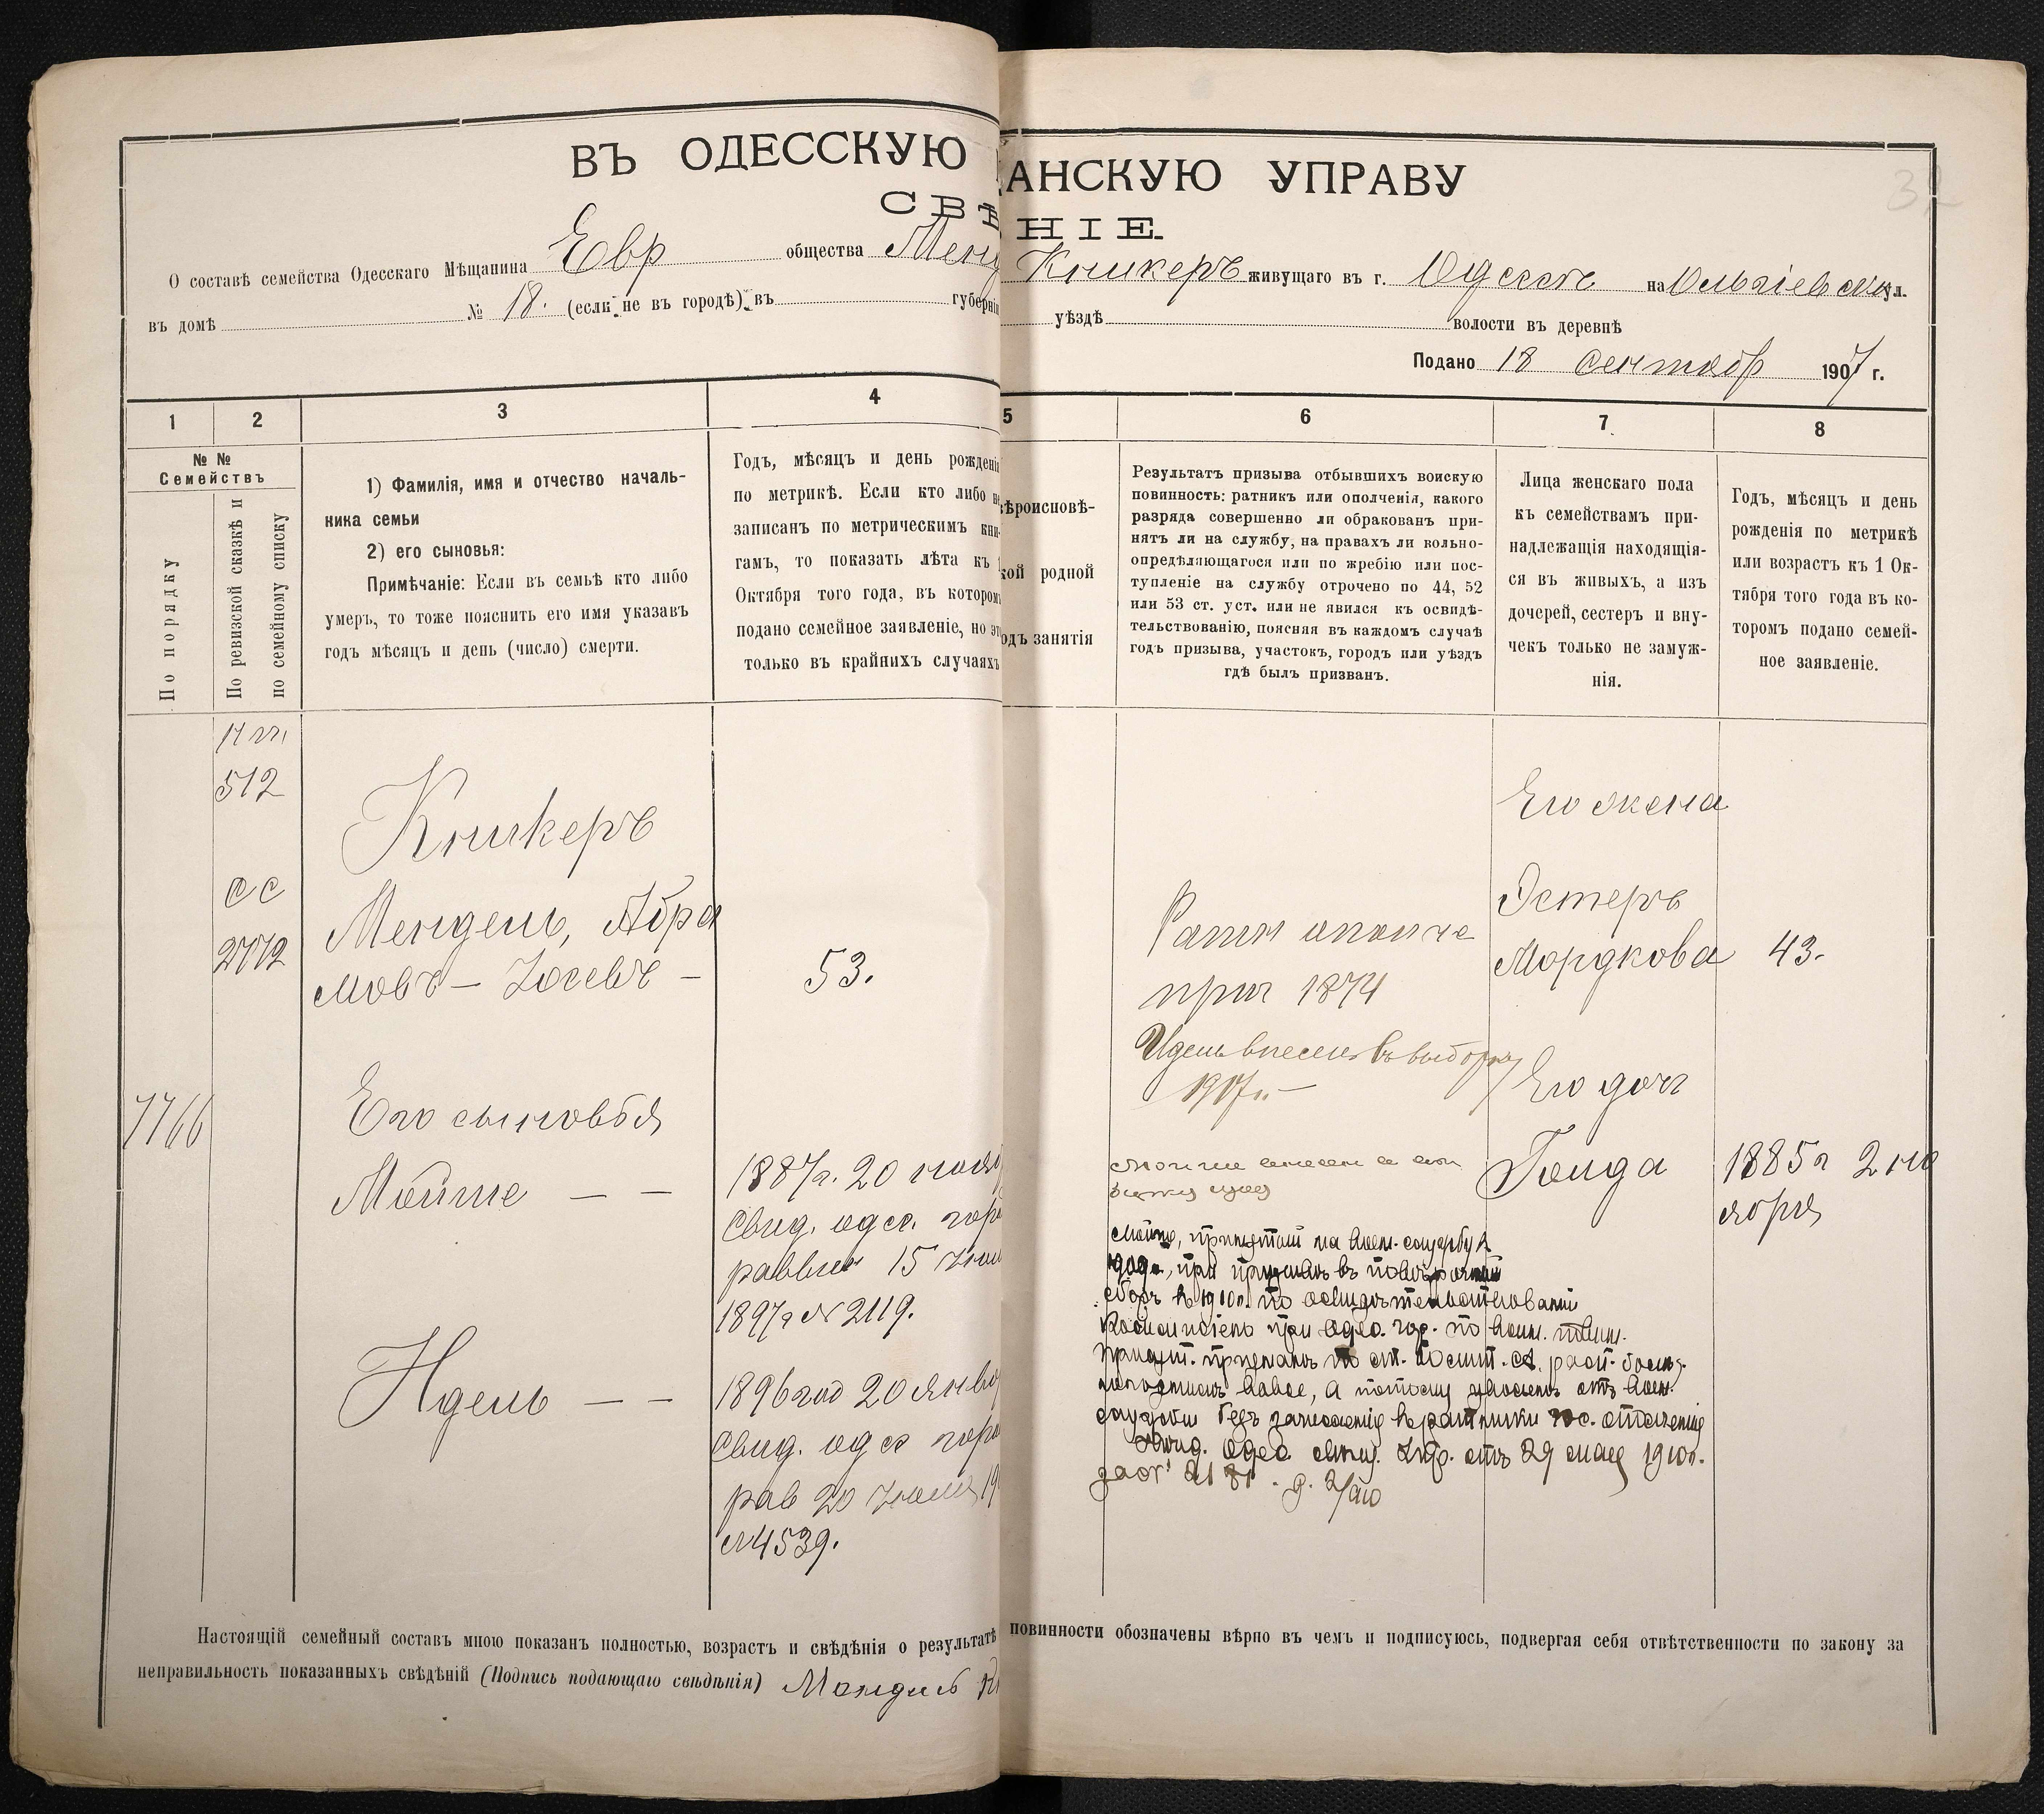 ВЪ ОДЕССКУЮ
АНСКУЮ УПРАВУ
32
СВѢ
НІЕ.
О составѣ семейства Одесскаго Мѣщанина Евр общества Менд
Кникеръ живущаго въ г. Одессѣ на Ольгіевской ул.
въ домѣ № 18. (если не въ городѣ) въ губерніи
уѣздѣ волости въ деревнѣ
Подано 18 сентябр 1907 г.
1
2
3
4
5
6
7
8
№ №
Семействъ
По порядку
По ревизской сказкѣ и
по семейному списку
1) Фамилія, имя и отчество началь-
ника семьи
2) его сыновья:
Примѣчаніе: Если въ семьѣ кто либо
умеръ, то тоже пояснить его имя указавъ
годъ мѣсяцъ и день (число) смерти.
Годъ, мѣсяцъ и день рожденія
по метрикѣ. Если кто либо не
записанъ по метрическимъ кни-
гамъ, то показать лѣта къ 1
Октября того года, въ которомъ
подано семейное заявленіе, но это
только въ крайнихъ случаяхъ
ѣроисповѣ-
кой родной
одъ занятія
Результатъ призыва отбывшихъ воискую
повинность: ратникъ или ополченія, какого
разряда совершенно ли обракованъ при-
нятъ ли на службу, на правахъ ли вольно-
опредѣляющагося или по жребію или пос-
тупленіе на службу отрочено по 44, 52
или 53 ст. уст. или не явился къ освидѣ-
тельствованію, поясняя въ каждомъ случаѣ
годъ призыва, участокъ, городъ или уѣздъ
гдѣ былъ призванъ.
Лица женскаго пола
къ семействамъ при-
надлежащія находящія-
ся въ живыхъ, а изъ
дочерей, сестеръ и вну-
чекъ только не замуж-
нія.
Годъ, мѣсяцъ и день
рожденія по метрикѣ
или возрастъ къ 1 Ок-
тября того года въ ко-
торомъ подано семей-
ное заявленіе.
512
сс
2772
7766
Кникеръ
Мендель, Абра
мовъ – Іосевъ –
53.
Его сыновья
Мойше – –
1887г. 20 нояб
Свид. одес. гор
раввин 15 Іюл
1897г № 2119.
Идель – –
1896 год 20 янва
Свид. одес гор
рав 20 Іюля 19
№ 4539.
Ратн ополче
приз 1874
Идель внесенъ въ выборку
1917г. –
Мойше внесен в
Мойше, принятый на воен. службу в
1909, при въ
сборъ въ 1910г. по освидѣтельствованіи
при Одес. гор. по воин. повин.
а потому уволенъ отъ воен.
службы безъ зачисленія въ ратники гос. ополченія
Свид. Одес. отъ 29 мая 1910г.
Его жена
Эстеръ
Мордкова
43.
Его доч
Гольда
1885г 2 но
ября
Настоящій семейный составъ мною показанъ полностью, возрастъ и свѣдѣнія о результатѣ
повинности обозначены вѣрно въ чемъ и подписуюсь, подвергая себя отвѣтственности по закону за
неправильность показанныхъ свѣдѣній (Подпись подающаго свѣдѣнія) Мандель Кн